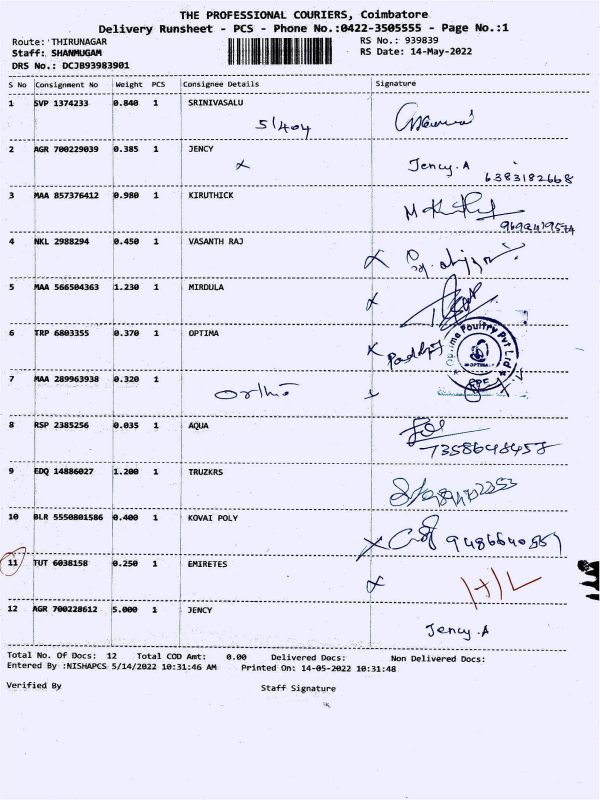 THE PROFESSIONAL COURIERS, Coimbatore
Delivery Runsheet - PCS - Phone No.:0422-3505555 - Page No.:1
Route: THIRUNAGAR RS No.: 939839
Staff: SHANMUGAM RS Date: 14-May-2022
DRS No.: DCJB93983901
S No Consignment No Weight PCS Consignee Details Signature
1 SVP 1374233 0.840 1 SRINIVASALU
51404
2 AGR 700229039 0.385 1 JENCY Jency.A
x 6383182668
3 MAA 857376412 0.980 1 KIRUTHICK
4 NKL 2988294 0.450 1 VASANTH RAJ
x
5 MAA 566504363 1.230 1 MIRDULA
x
6 TRP 6803355 0.370 1 OPTIMA
x Optima Poultry Pvt Ltd
OPTIMA
7 MAA 289963938 0.320 1
Ortho
8 RSP 2385256 0.035 1 AQUA
7358648458
9 EDQ 14886027 1.200 1 TRUZKRS
10 BLR 5550801586 0.400 1 KOVAI POLY
x
11 TUT 6038158 0.250 1 EMIRETES
x
12 AGR 700228612 5.000 1 JENCY
Jency.A
Total No. Of Docs: 12 Total COD Amt: 0.00 Delivered Docs: Non Delivered Docs:
Entered By :NISHAPCS 5/14/2022 10:31:46 AM Printed On: 14-05-2022 10:31:48
Verified By Staff Signature